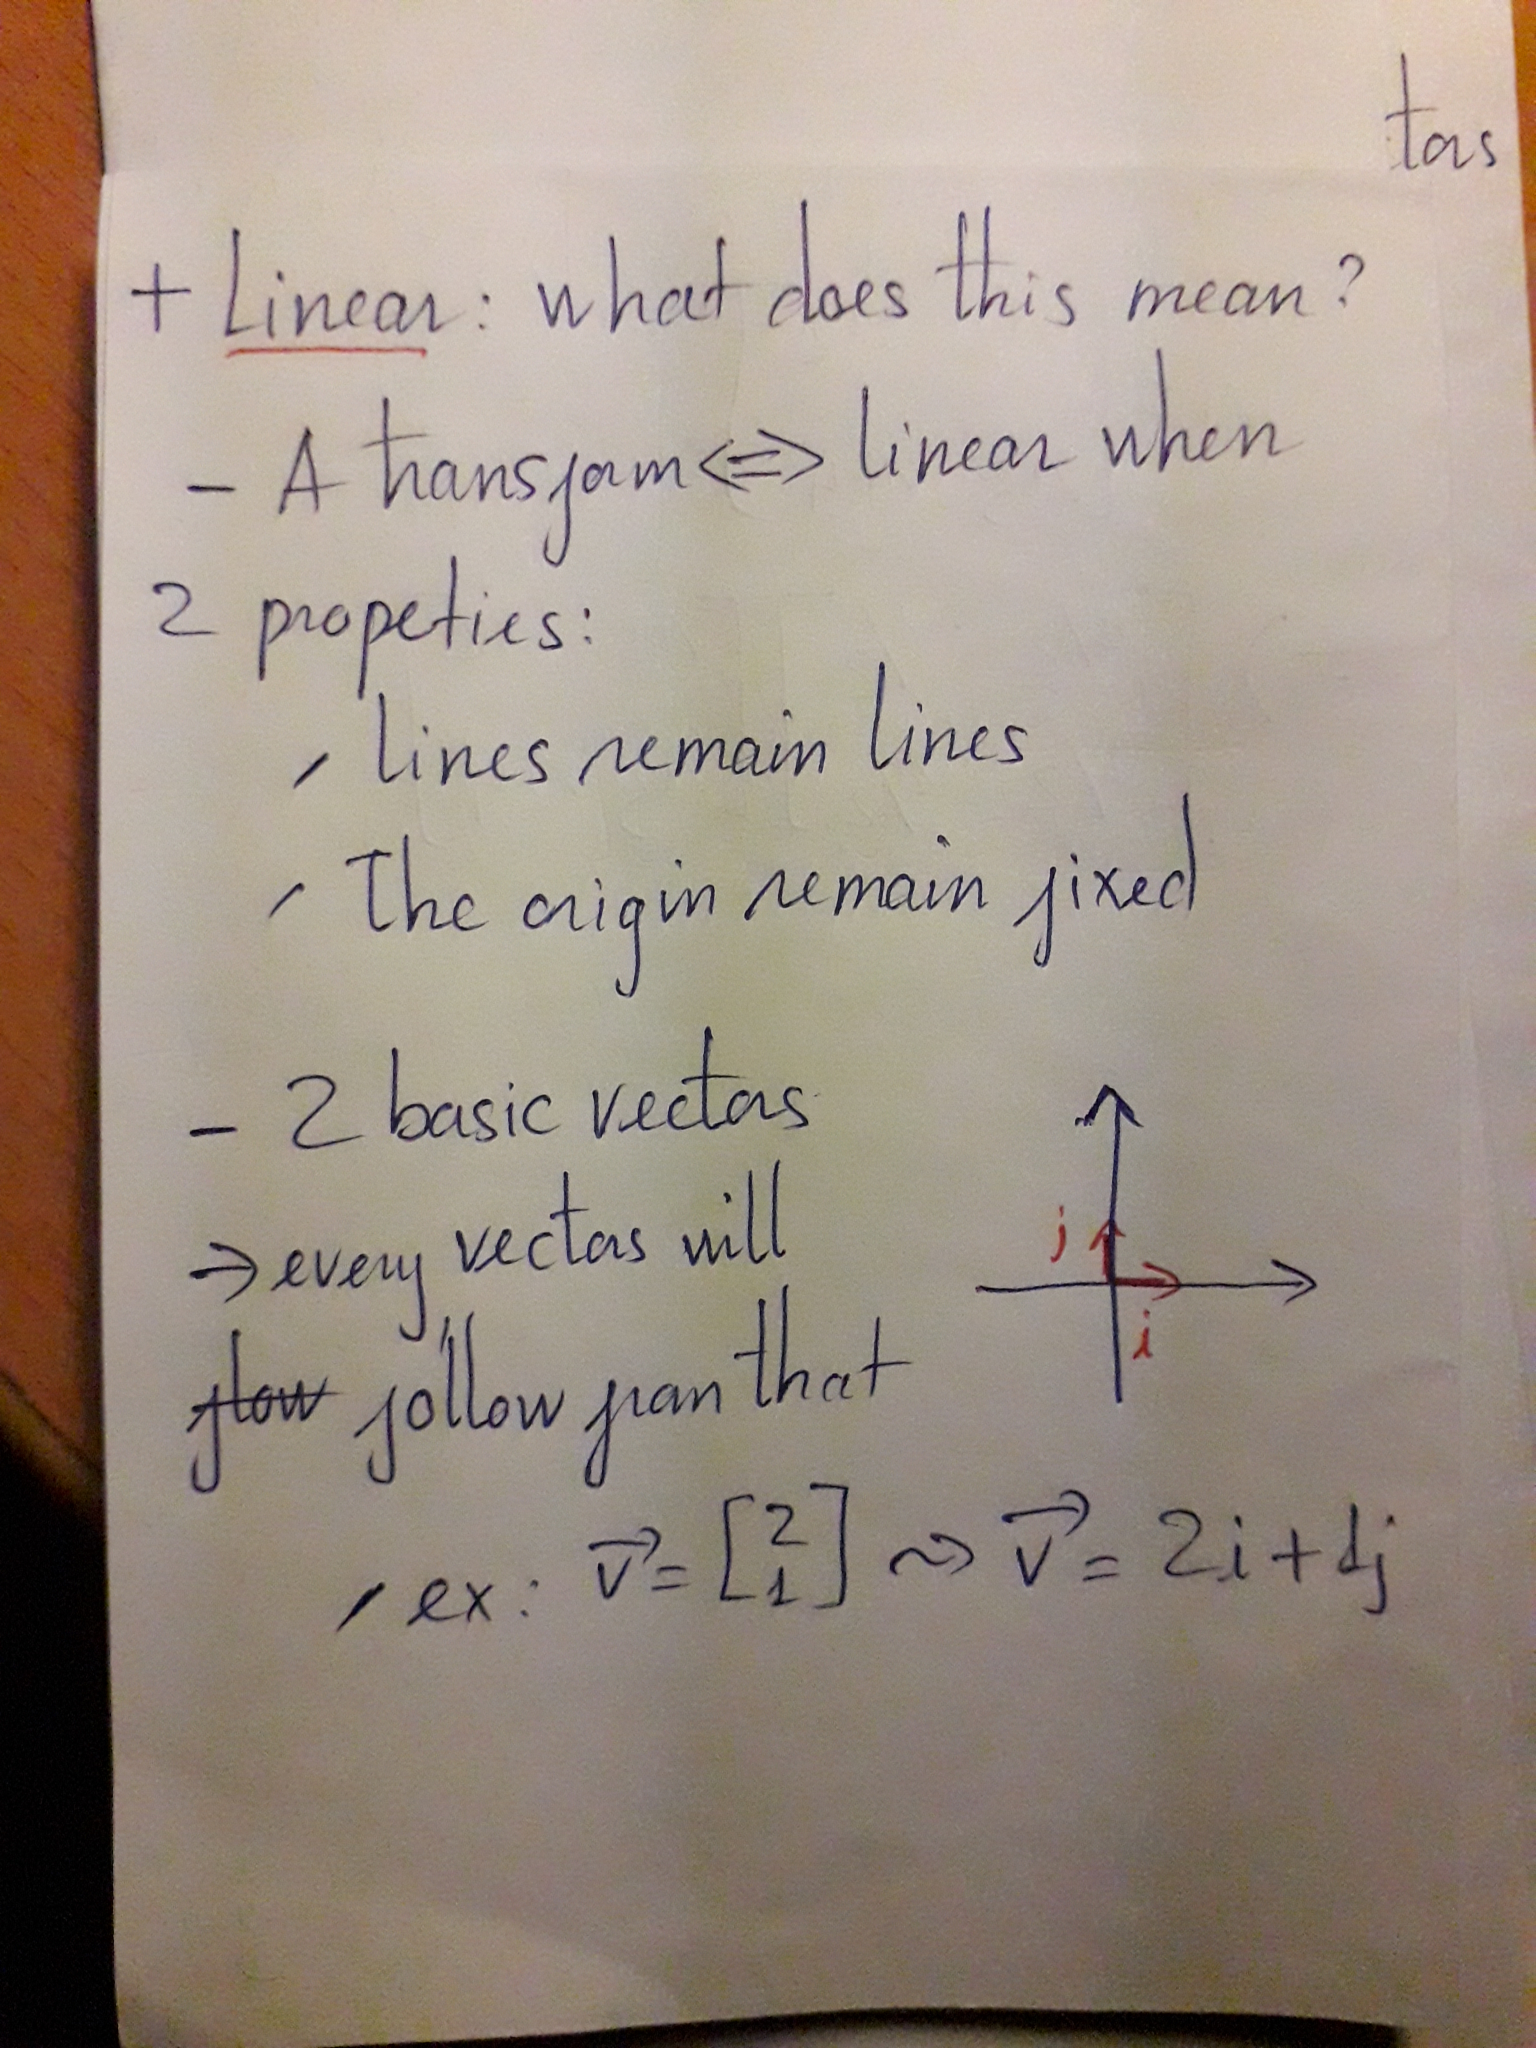 tors
+ Linear: what does this mean?
- A transform <=> linear when
2 propeties:
✓ lines remain lines
✓ the origin remain fixed
- 2 basic vectors
→ every vectors will
flow follow from that
j
i
✓ ex: v⃗ = [2 1] ⇝ v⃗ = 2i + 1j